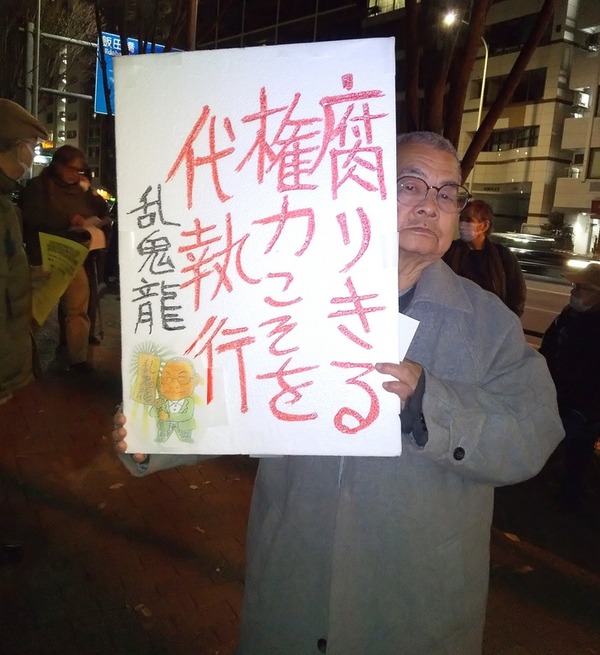 腐りきる
権力こそを
代執行
乱鬼龍
飯田橋